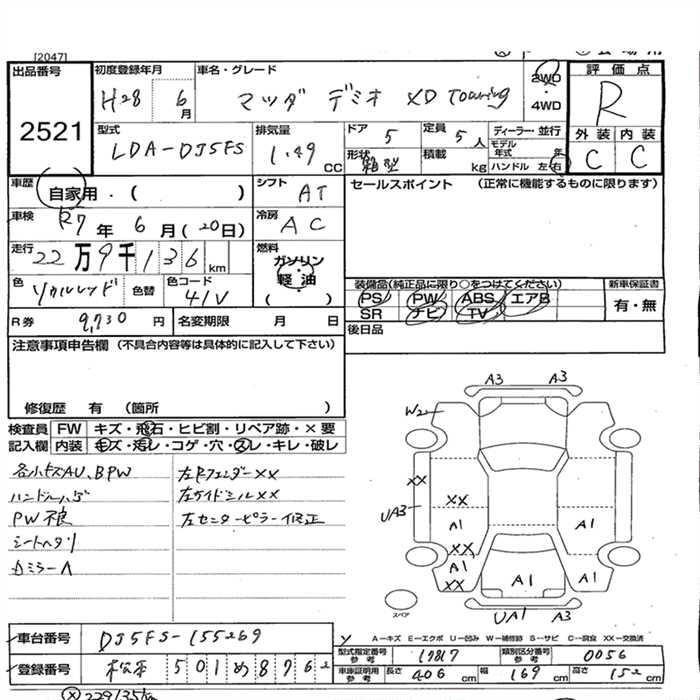 [2047]
出品番号
2521
初度登録年月
H28 6月
車名・グレード
マツダ デミオ XD Touring
2WD
・
4WD
評価点
R
外装 内装
C C
型式
LDA-DJ5FS
排気量
1.49 CC
ドア 5
定員 5人
形状 箱型
積載 kg
ディーラー・並行
モデル年式 年
ハンドル 左・右
車歴
自家用・( )
車検
R7年 6月(20日)
走行
22万9千136km
色
ソウルレッド
色替
色コード
41V
シフト AT
冷房 AC
燃料
ガソリン
・
軽油
( )
セールスポイント (正常に機能するものに限ります)
装備品(純正品に限り○をつけてください)
PS PW ABS エアB
SR ナビ TV
新車保証書
有・無
後日品
R券 9,730円
名変期限 月 日
注意事項申告欄(不具合内容等は具体的に記入して下さい)
修復歴 有 (箇所 )
検査員
記入欄
FW キズ・飛石・ヒビ割・リペア跡・×要
内装 キズ・汚レ・コゲ・穴・スレ・キレ・破レ
各小キズAU、BPW
ハンドルハゲ
PW不良
シートヘタリ
左Rフェンダー××
左サイドシル××
左センターピラー修正
A3 A3
W2
XX
UA3
XX
A1
XX
A1
XX
A1
A1
A1
UA1 A3
スペア
A―キズ E―エクボ U―凹み W―補修跡 S―サビ C―腐食 XX―交換済
車台番号
DJ5FS-155269
登録番号
松本 501 め 8762
型式指定番号
参考
17817
類別区分番号
参考
0056
車庫証明用
参考
長さ 406cm 幅 169cm 高さ 152cm
229135km